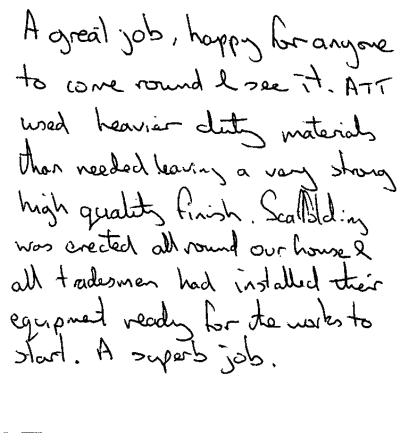 A great job, happy for anyone
to come round & see it. ATT
used heavier duty materials
than needed leaving a very strong
high quality finish. Scaffolding
was erected all round our house &
all tradesmen had installed their
equipment ready for the works to
start. A superb job.